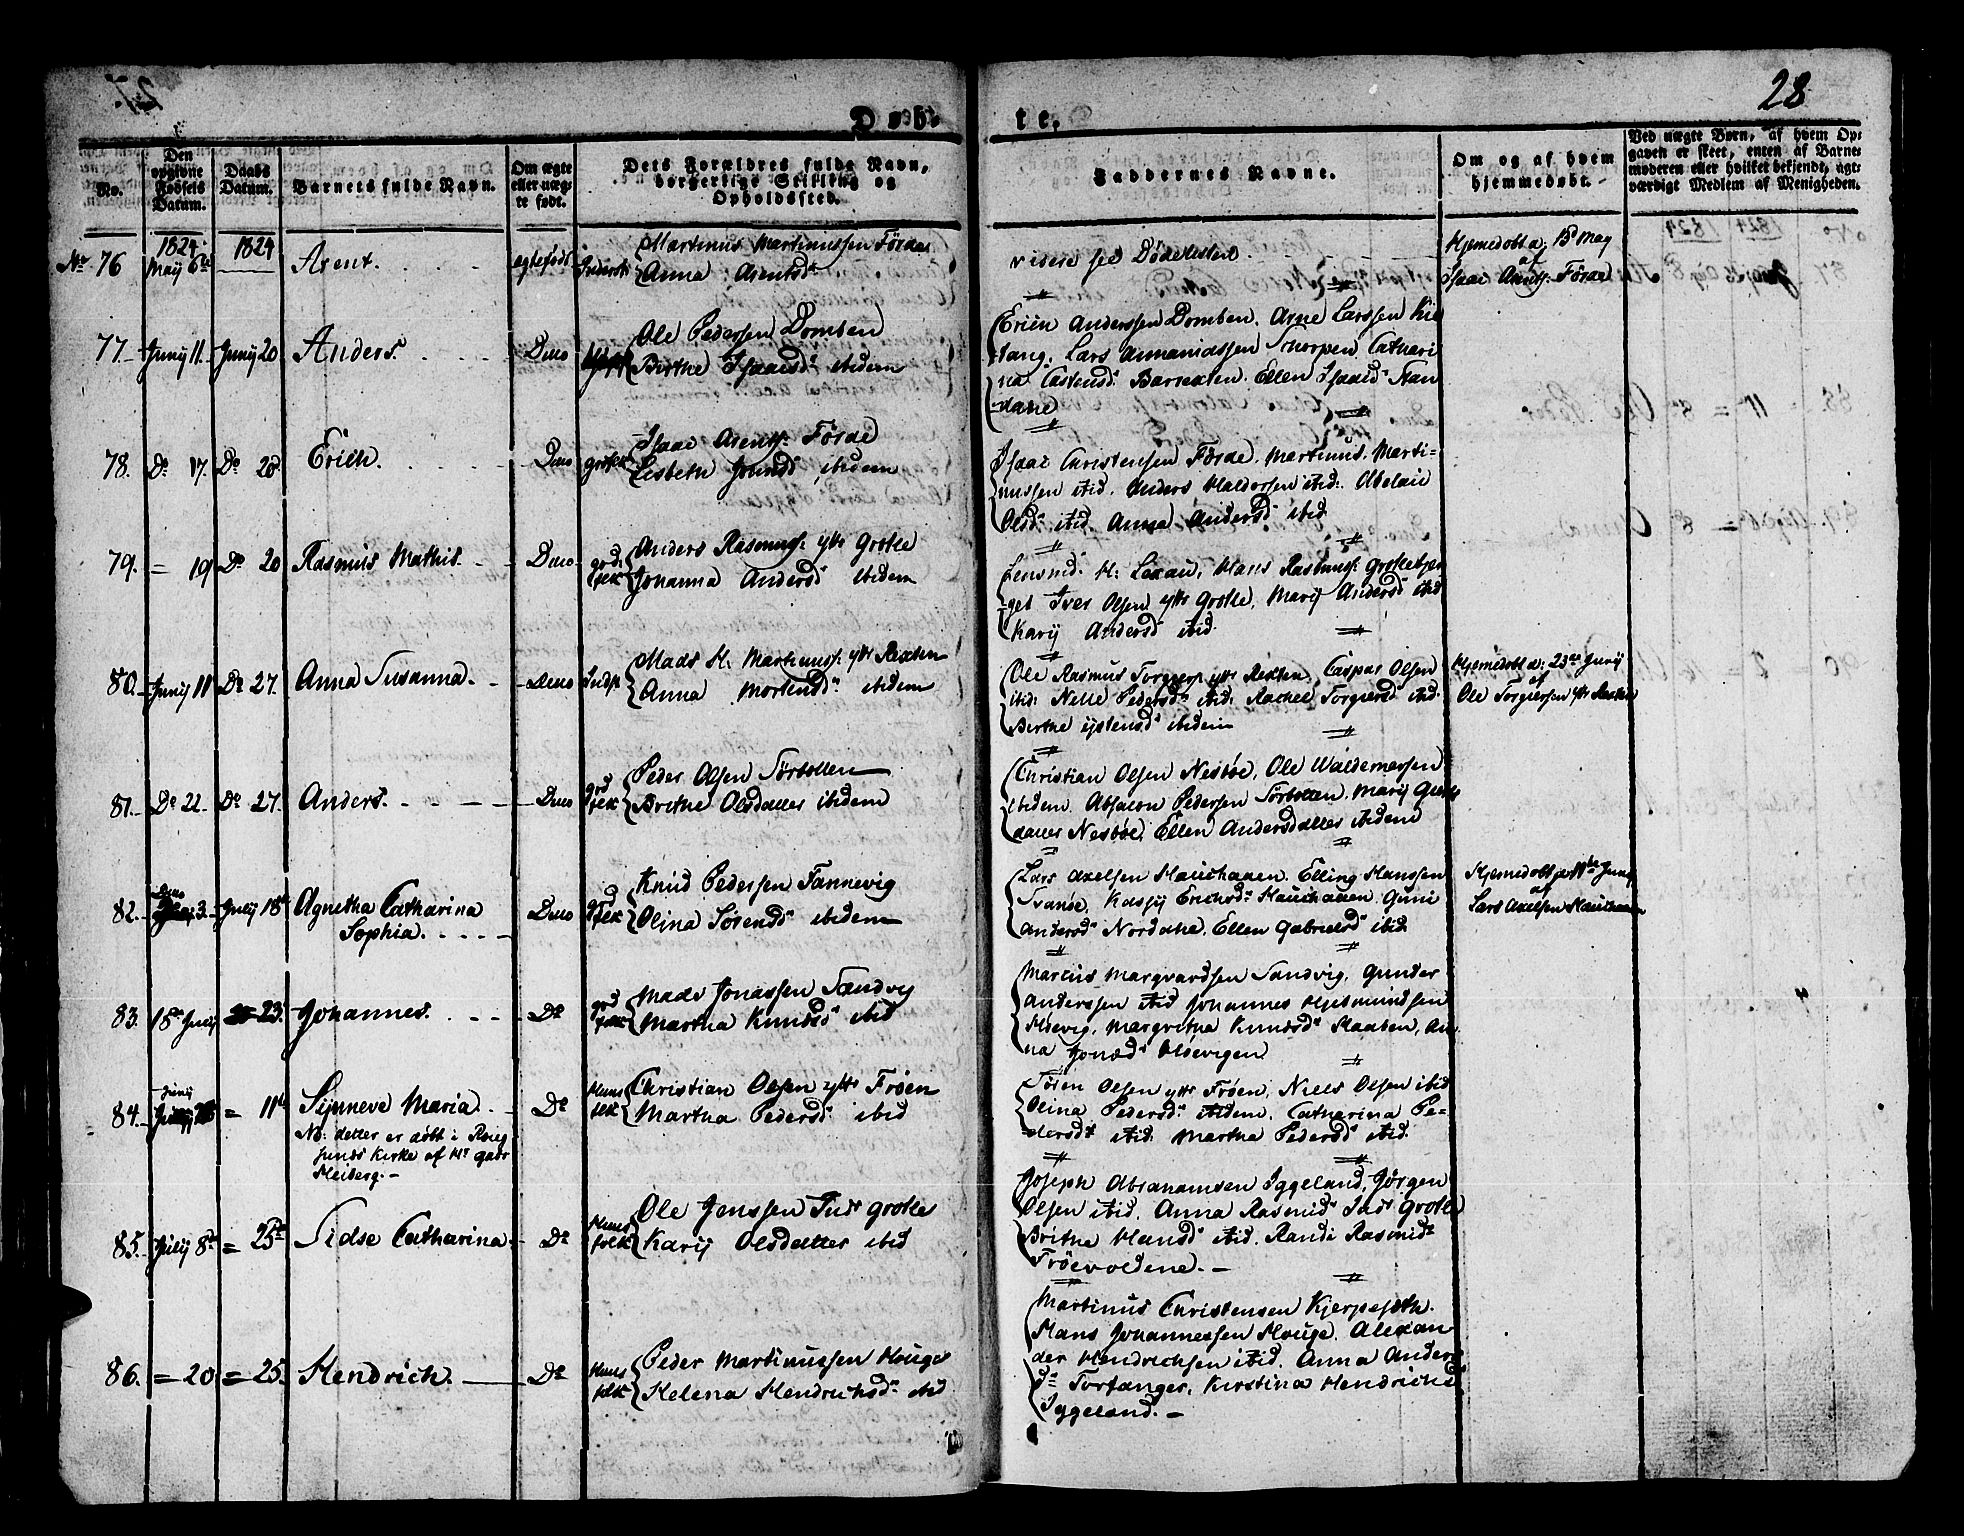 28
Døbte.
No.
Den opgivne Fødsels Datum.
Daabs Datum.
Barnets fulde Navn.
Om ægte eller uægte født.
Dets Forældres fulde Navn, borgerlige Stilling og Opholdssted.
Faddernes Navne.
Om og af hvem hjemmedøbt.
Ved uægte Børn, af hvem Opgaven er skeet, enten af Barnemoderen eller hvilket bekjendt, agtværdigt Medlem af Menigheden.
No 76
1824 Maij 6te
1824
Arent.
egtefødt
Martinus Martinussen Förde
Anna Arentsd
visere se Dödelisten
Hjemedøbt d: 15 May
af
Isaac Arents. Förde
77.
Junij 11.
Junij 20
Anders.
Duo
Ole Pedersen Domben
Birthe Isaacsd ibidem
Erich Anderssen Domben. Arne Larssen
Lars Annaniassen Schorpen Cathari
na Castensd Barrexten. Ellen Isaacsd Stan
dane
78.
Do 17.
Do 20
Erich.
Duo
Isaac Arents. Förde
Lisbeth ibidem
Isaac Christensen Förde. Martinus Marti-
nussen ibid. Anders Haldorsen ibid. Abelau
Olsd ibid. Anna Andersd ibid
79.
= 19
Do 20
Rasmus Mathis.
Duo
grd. folk
Anders Rasmus. ytr Grotle
Johanna Andersd ibidem
H: Lexau, Hans Rasmus. Grotlebjer
get Iver Olsen ytr Grotle, Marij Andersd ibid
Karij Andersd ibid.
80.
Junij 11
Do 27.
Anna Susanna.
Duo
Inds.
Mads H: Martinus. ytr Rexten
Anna Mortensd ibidem
Ole Rasmus Torgiers. ytr Rexten, Caspar Olsen
ibid: Nille Pedersd ibid: Rachel Torgiersd ibid.
Birthe ystensd ibidem
Hjemedobt d: 23de Junij
af
Ole Torgiersen ytr Rexten
81.
Do 22.
Do 27.
Anders.
Duo
grd folk
Peder Olsen Sörbotten
Brithe Olsdatter ibidem
Christian Olsen Nesböe, Ole Waldemersen
ibidem. Absalon Pedersen Sörbotten. Marij
datter Nesböe, Ellen Andersdatter ibidem
82.
3.
Julij 18de
Agnetha Catharina
Sophia.
Duo
grd folk
Knud Pedersen Fannevig
Olina Sörensd ibidem
Lars Axelsen Hauehauen. Elling Hanssen
Svanöe, Erichsd Hauehauen. Guni
Andersd Nordahe. Ellen Gabrielsd ibid.
Hjemedobt d 11te Junij
af
Lars Axelsen Hauehauen
83.
18de Julij
23.
Johannes.
Do
grd folk
Mads Jonassen Sandvig
Martha Knudsd ibid
Marcus Margvardsen Sandvig, Gunder
Anderssen ibid Johannes Hiesmundsen
Höevig, Margretha Knudsd Staaben, An
na Jonasd Höevigen
84.
Junij
= 11te
Synneve Maria.
NB: dette er døbt i
Kirke af Hr
Heiberg.
Do
Huus folk
Christian Olsen ytr Fröen
Martha Pedersd ibid
Sören Olsen ytr Fröen, Niels Olsen ibid
Olina Pedersd ibidem, Catharina Pe-
dersd ibid. Martha Pedersd ibid.
85.
Julij 8de
= 25de
Sidse Catharina.
Do
Huus folk
Ole Jenssen Indr Grotle
Karij Olsdatter ibid
Joseph Abrahamsen Iggeland, Jörgen
Olsen ibid. Anna Rasmd Indr Grotle
Brithe Hansd ibid. Randi Rasmd
Fröevoldene.
86.
= 20
= 25.
Hendrich.
Do
Huus folk
Peder Martinussen Houge
Helena Hendrichsd ibid
Martinus Christensen Kjerpeseth.
Hans Johannessen Houge. Alexan
der Hendrichsen ibid. Anna Anders
d Torfanger, Kirstina Hendrichs
Iggeland.